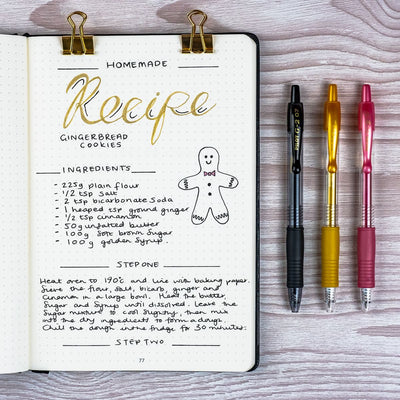 HOMEMADE
Recipe
GINGERBREAD
COOKIES
INGREDIENTS
- 225g plain flour
- 1/2 tsp salt
- 2 tsp bicarbonate soda
- 1 heaped tsp ground ginger
- 1/2 tsp cinnamon
- 50g unsalted butter
- 100g soft brown sugar
- 100g golden syrup.
STEP ONE
Heat oven to 190°c and line with baking paper.
Sieve the flour, salt, bicarb, ginger and
cinnamon in a large bowl. Heat the butter,
sugar and syrup until dissolved. Leave the
sugar mixture to cool slightly, then mix
into the dry ingredients to form a dough.
Chill the dough in the fridge for 30 minutes.
STEP TWO
77